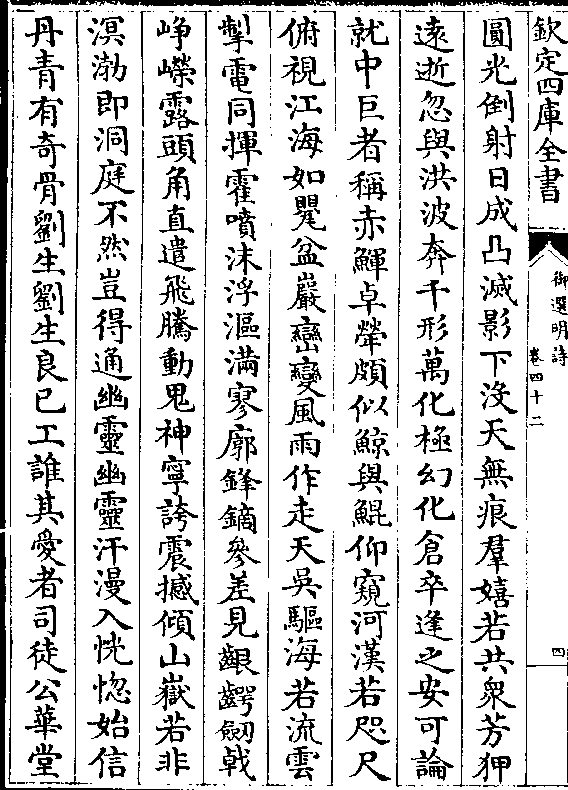 欽定四庫全書
御選明詩
卷四十二
四
圓光倒射日成凸滅影下沒天無痕羣嬉若共衆芳狎
遠逝忽與洪波奔千形萬化極幻化倉卒逢之安可論
就中巨者稱赤鯶卓犖頗似鯨與鯤仰窺河漢若咫尺
俯視江海如甖盆巖巒變風雨作走天吳驅海若流雲
掣電同揮霍噴沫浮漚滿寥廓鋒鏑參差見齦齶劒戟
峥嶸露頭角直遣飛騰動鬼神寧誇震撼傾山嶽若非
溟渤即洞庭不然豈得通幽靈幽靈汗漫入恍惚始信
丹青有奇骨劉生劉生良已工誰其愛者司徒公華堂